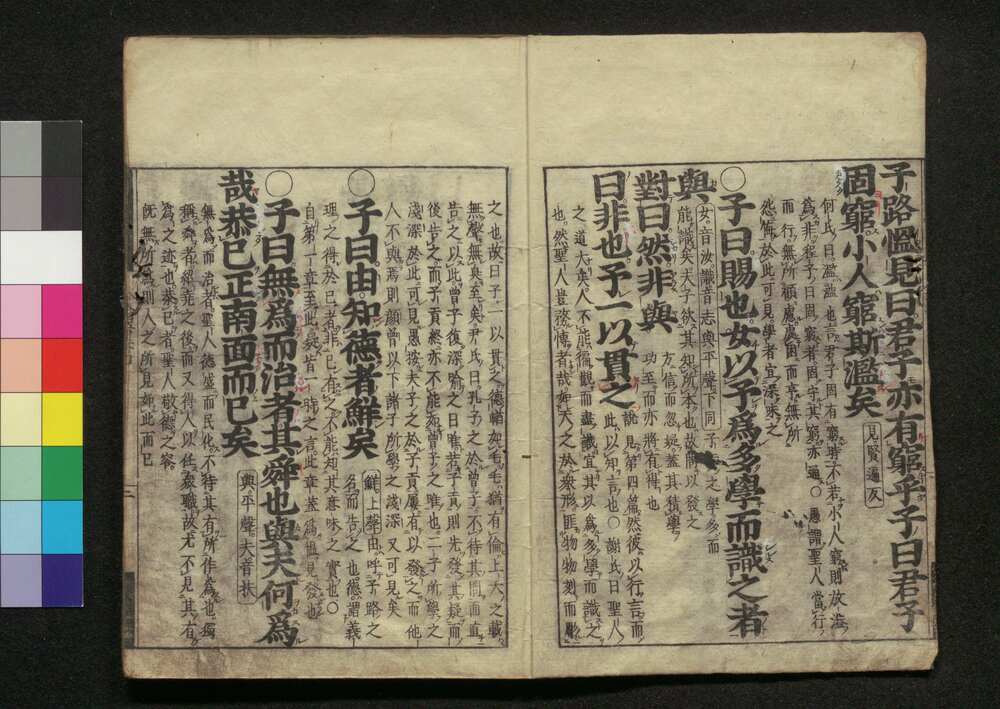 子路慍見曰君子亦有窮乎子曰君子
固窮小人窮斯濫矣 見賢遍反
何氏曰濫溢也言君子固有窮時不若小人窮則放溢
爲非程子曰固窮者固守其窮亦通○愚謂聖人當行
而行無所顧慮處困而亨無所
怨悔於此可見學者宜深味之
○子曰賜也女以予爲多學而識之者
與
女音汝識音志與平聲下同 子貢之學多而
能識矣夫子欲其知所本也故問以發之
對曰然非與
方信而忽疑蓋其積學
功至而亦將有得也
曰非也予一以貫之
說見第四篇然彼以行言而
此以知言也○謝氏曰聖人
之道大矣人不能徧觀而盡識宜其以爲多學而識之
也然聖人豈務博者哉如天之於衆形匪物物刻而雕
之也故曰予一以貫之德輶如毛毛猶有倫上天之載
無聲無臭至矣尹氏曰孔子之於曾子不待其問而直
告之以此曾子復深喻之曰唯若子貢則先發其疑而
後告之而子貢終亦不能如曾子之唯也二子所學之
淺深於此可見愚按夫子之於子貢屢有以發之而他
人不與焉則顔曾以下諸子所學之淺深又可見矣
○子曰由知德者鮮矣
鮮上聲由呼子路之
名而告之也德謂義
理之得於己者非己有之不能知其意味之實也○
自第一章至此疑皆一時之言此章蓋爲慍見發也
○子曰無爲而治者其舜也與夫何爲
哉恭己正南面而已矣 與平聲夫音扶
無爲而治者聖人德盛而民化不待其有所作爲也獨
稱舜者紹堯之後而又得人以任衆職故尤不見其有
爲之迹也恭己者聖人敬德之容
旣無所爲則人之所見如此而已